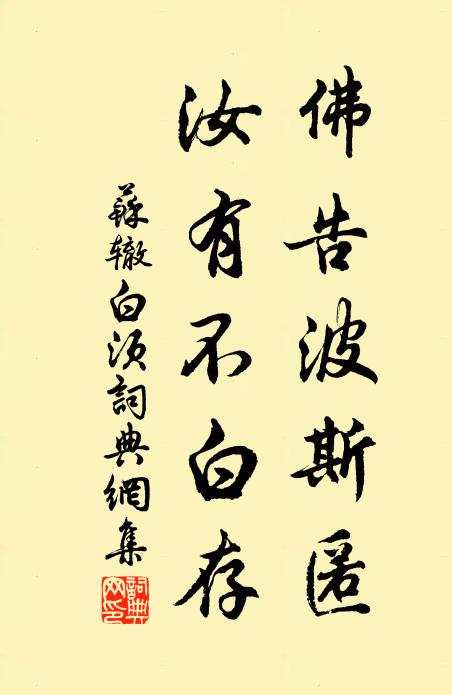 佛告波斯匿
汝有不白存
蘇辙白须詞典網集
詞典網印